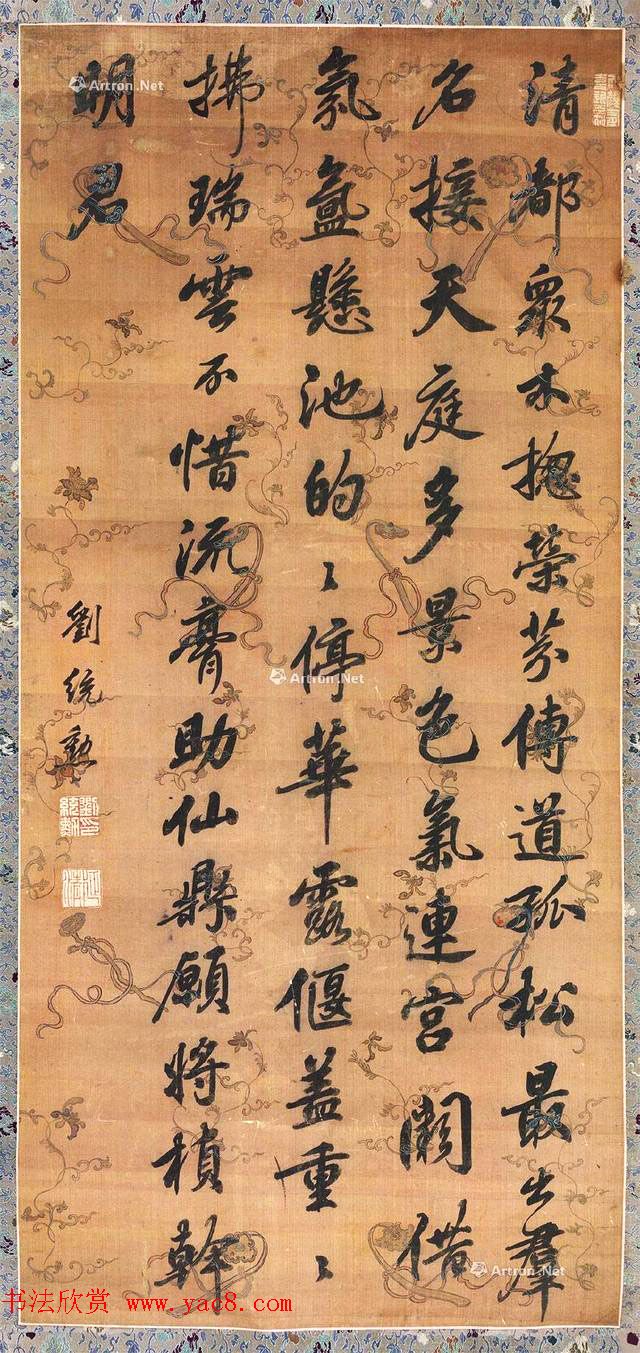 清都眾木揔榮芬傳道孤松最出羣
名接天庭多景色氣連宮闕借
氛氳懸池的〻停華露偃盖重〻
拂瑞雲不惜流膏助仙鼎願將楨幹
明君
劉統勳
Artron.Net
Artron.Net
Artron.Net
Artron.Net
书法欣赏 www.yac8.com